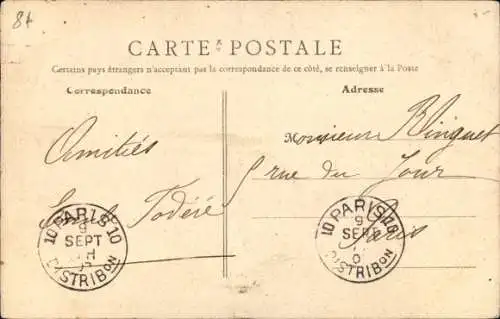 84
CARTE POSTALE
Certains pays étrangers n'acceptant pas la correspondance de ce côté, se renseigner à la Poste
Correspondance
Adresse
Amitiés
Monsieur Blinguet
rue du Jour
Paris
10 PARIS 10
9
SEPT
DISTRIBON
10 PARIS 10
9
SEPT
DISTRIBON